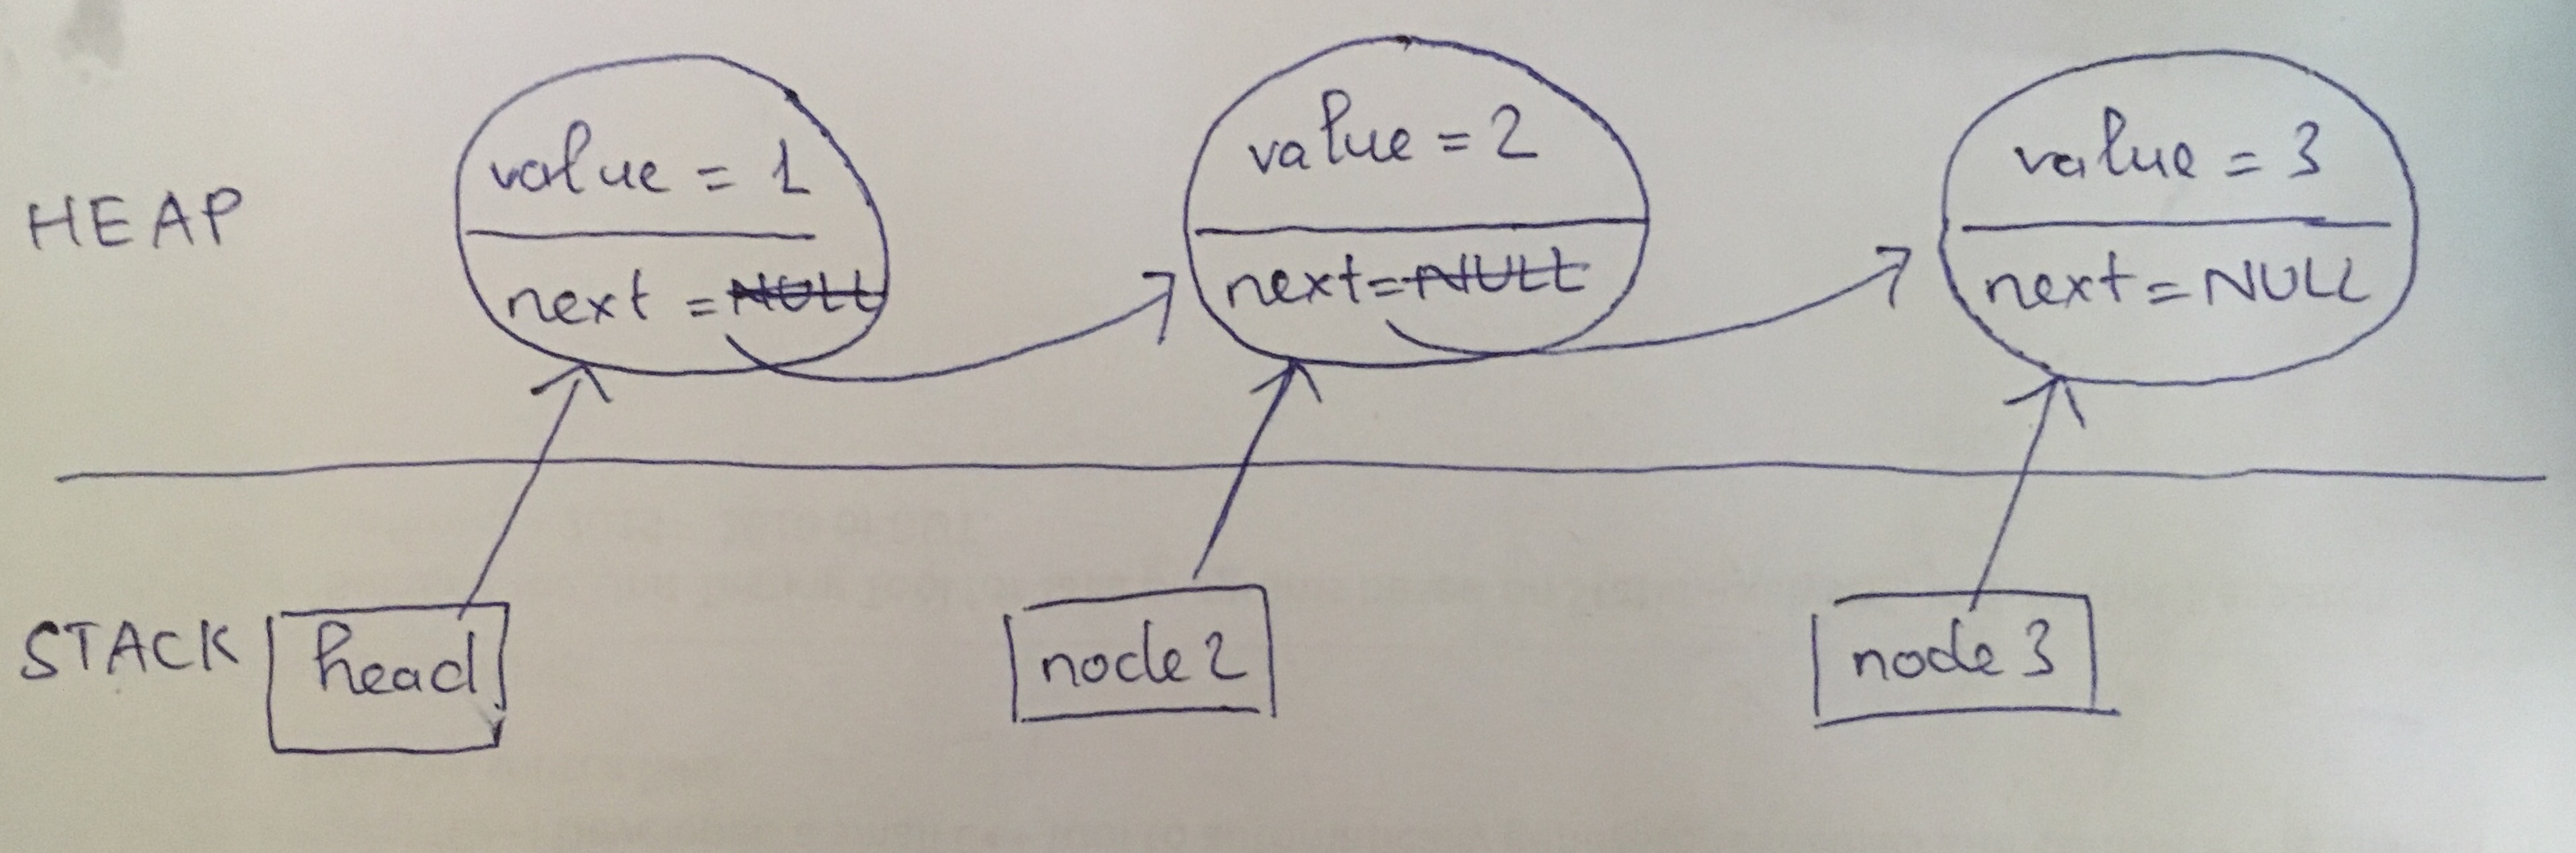 HEAP
value = 1
next = NULL
value = 2
next = NULL
value = 3
next = NULL
STACK
head
node 2
node 3